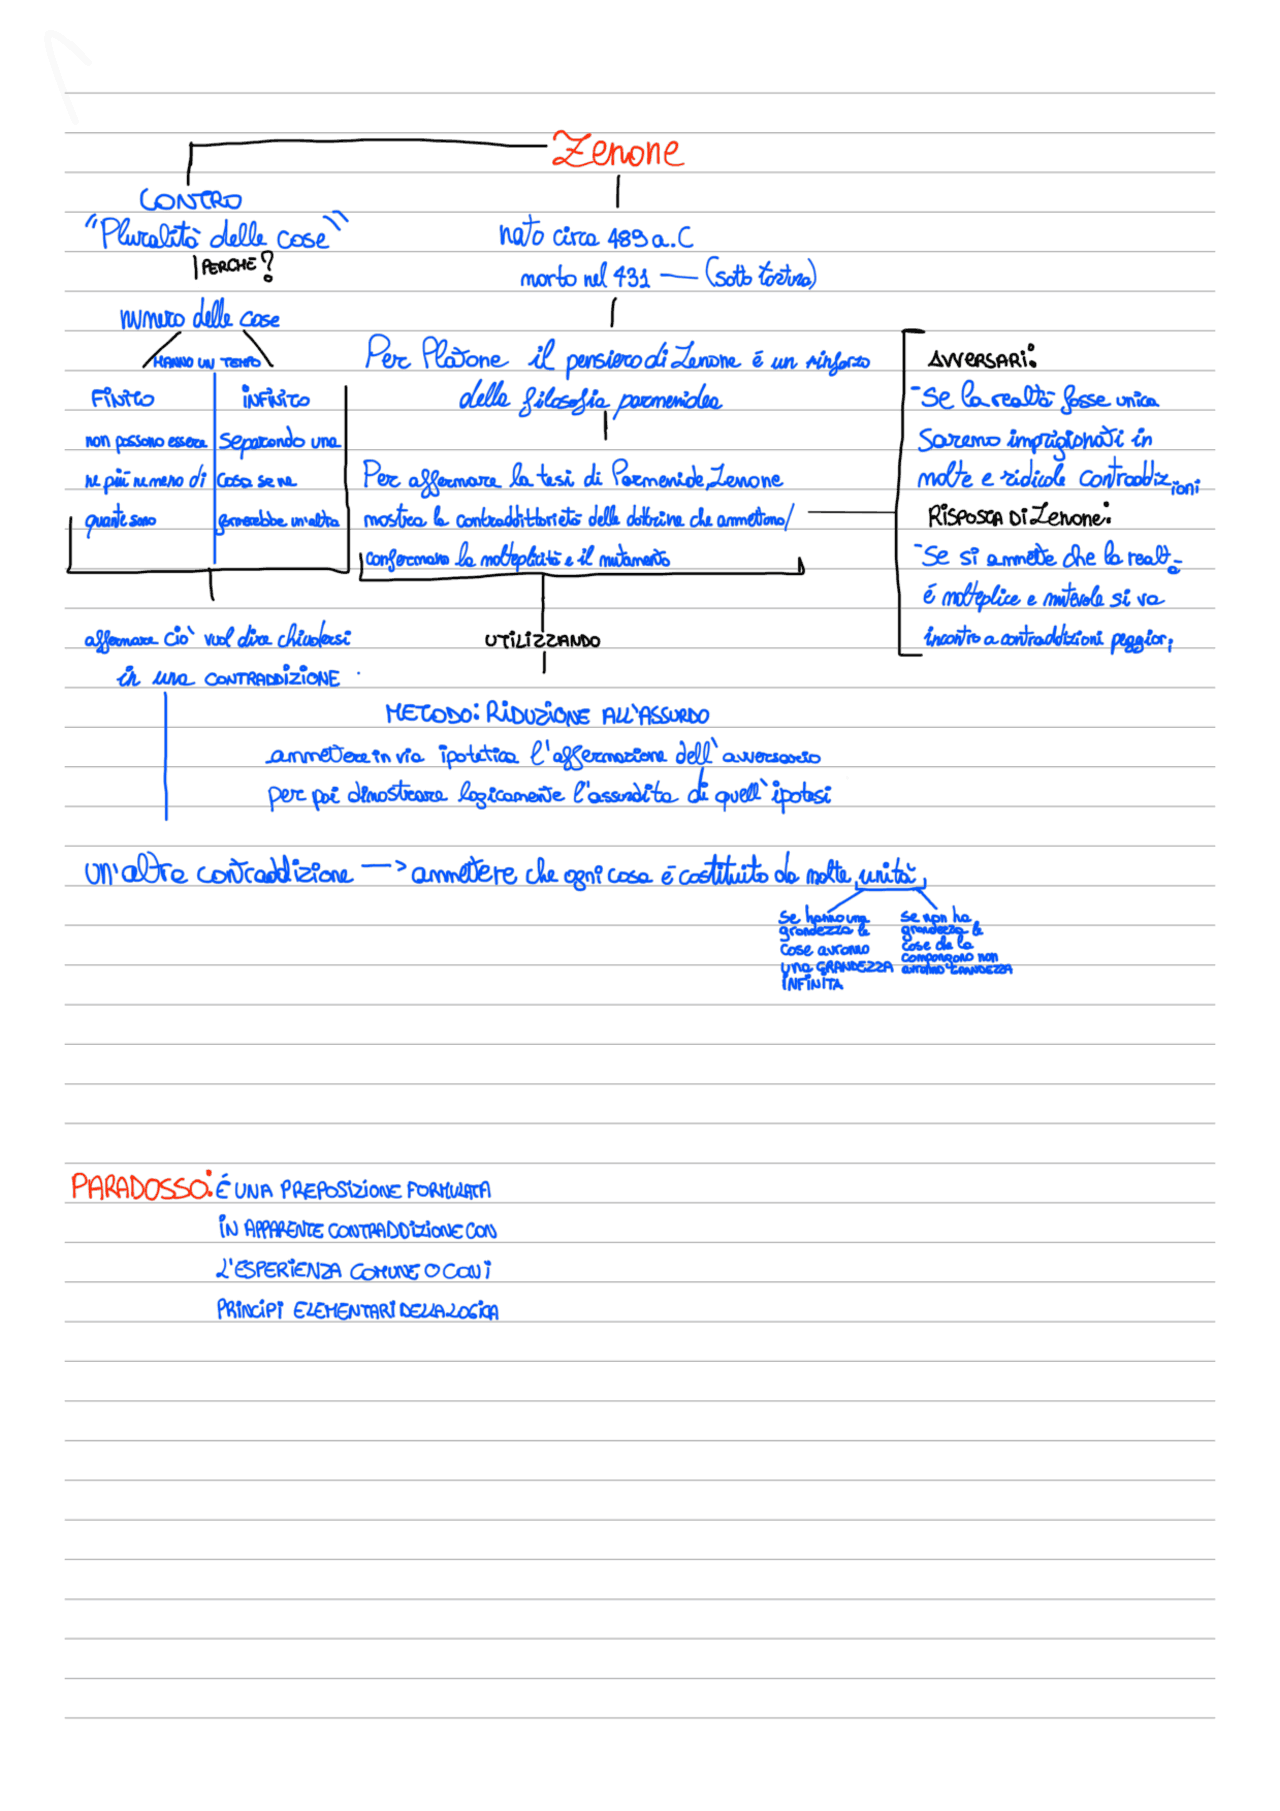 Zenone
CONTRO
"Pluralità delle cose"
PERCHÉ?
numero delle cose
HANNO UN TEMPO
FINITO
non possono essere
ne più ne meno di
quante sono
INFINITO
Separando una
cosa se ne
formerebbe un'altra
affermare ciò vuol dire chiudersi
in una CONTRADDIZIONE
nato circa 489 a.C
morto nel 431 — (sotto tortura)
Per Platone il pensiero di Zenone é un rinforzo
della filosofia parmenidea
Per affermare la tesi di Parmenide, Zenone
mostra la contraddittorietà delle dottrine che ammettono/
confermano la molteplicità e il mutamento
UTILIZZANDO
METODO: RIDUZIONE ALL'ASSURDO
ammettere in via ipotetica l'affermazione dell'avversario
per poi dimostrare logicamente l'assurdita di quell'ipotesi
AVVERSARI:
-Se la realtà fosse unica
saremo imprigionati in
molte e ridicole contraddizioni
RISPOSTA DI Zenone:
-Se si ammette che la realtà
é molteplice e mutevole si va
incontro a contraddizioni peggiori
Un'altra contraddizione —> ammettere che ogni cosa é costituito da molte unità
Se hanno una
grandezza le
cose avranno
una GRANDEZZA
INFINITA
Se non ha
grandezza le
cose che la
compongono non
avranno GRANDEZZA
PARADOSSO: É UNA PREPOSIZIONE FORMULATA
IN APPARENTE CONTRADDIZIONE CON
L'ESPERIENZA COMUNE O CON I
PRINCIPI ELEMENTARI DELLA LOGICA